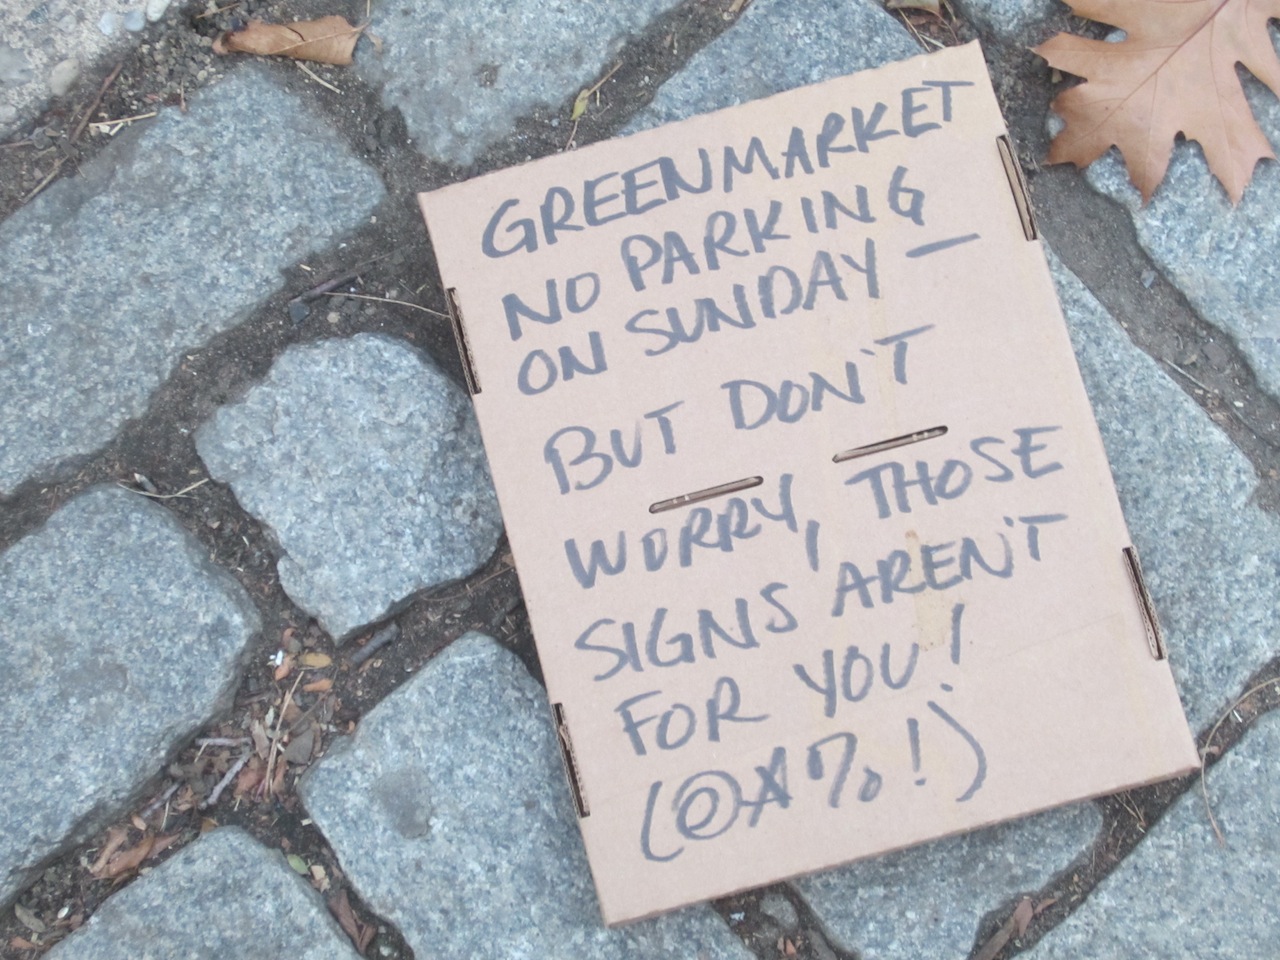 GREENMARKET
NO PARKING
ON SUNDAY —
BUT DON'T
WORRY, THOSE
SIGNS AREN'T
FOR YOU!
(@*%!)